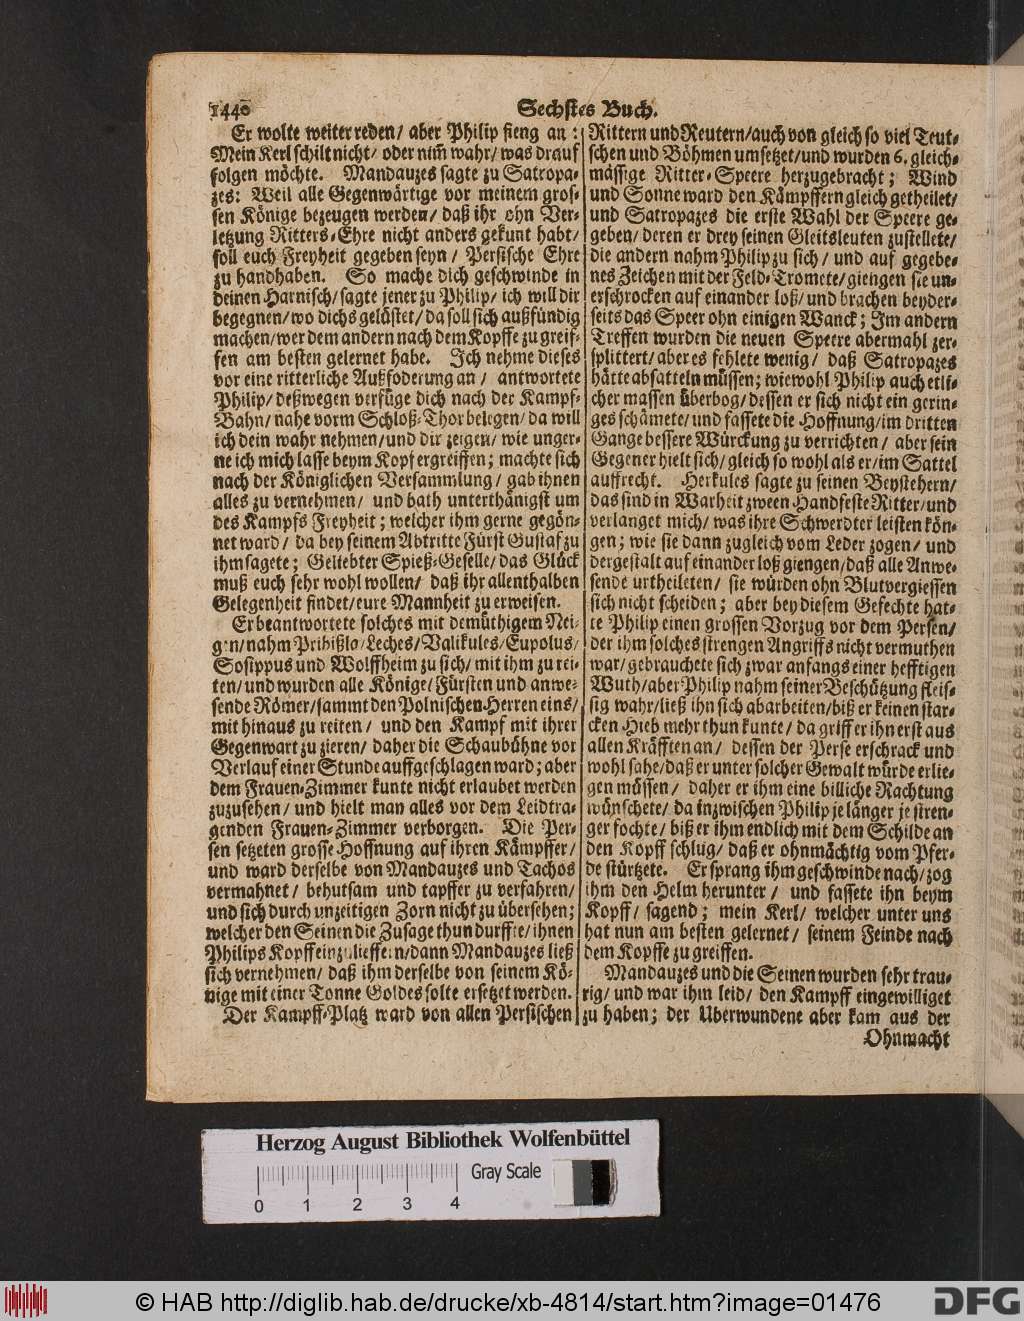 1440
Sechstes Buch.
Er wolte weiter reden/ aber Philip fieng an:
Mein Kerl schilt nicht/ oder nim̃ wahr/ was drauf
folgen möchte. Mandauzes sagte zu Satropa-
zes: Weil alle Gegenwärtige vor meinem gros-
sen Könige bezeugen werden/ daß ihr ohn Ver-
letzung Ritters-Ehre nicht anders gekunt habt/
soll euch Freyheit gegeben seyn/ Persische Ehre
zu handhaben. So mache dich geschwinde in
deinen Harnisch/ sagte jener zu Philip/ ich will dir
begegnen/ wo dichs gelüstet/ da soll sich außfündig
machen/ wer dem andern nach dem Kopffe zu greif-
fen am besten gelernet habe. Ich nehme dieses
vor eine ritterliche Außfoderung an/ antwortete
Philip/ deßwegen verfüge dich nach der Kampf-
Bahn/ nahe vorm Schloß-Thor belegen/ da will
ich dein wahr nehmen/ und dir zeigen/ wie unger-
ne ich mich lasse beym Kopf ergreiffen; machte sich
nach der Königlichen Versammlung/ gab ihnen
alles zu vernehmen/ und bath unterthänigst um
des Kampfs Freyheit; welcher ihm gerne gegön-
net ward/ da bey seinem Abtritte Fürst Gustaf zu
ihm sagete; Geliebter Spieß-Geselle/ das Glück
muß euch sehr wohl wollen/ daß ihr allenthalben
Gelegenheit findet/ eure Mannheit zu erweisen.
Er beantwortete solches mit demüthigem Nei-
gen/ nahm Pribißla/ Leches/ Valikules/ Eupolus/
Sosippus und Wolffheim zu sich/ mit ihm zu rei-
ten/ und wurden alle Könige/ Fürsten und anwe-
sende Römer/ sammt den Polnischen Herren eins/
mit hinaus zu reiten/ und den Kampf mit ihrer
Gegenwart zu zieren/ daher die Schaubühne vor
Verlauf einer Stunde auffgeschlagen ward; aber
dem Frauen-Zimmer kunte nicht erlaubet werden
zuzusehen/ und hielt man alles vor dem Leidtra-
genden Frauen-Zimmer verborgen. Die Per-
sen setzeten grosse Hoffnung auf ihren Kämpffer/
und ward derselbe von Mandauzes und Tachos
vermahnet/ behutsam und tapffer zu verfahren/
und sich durch unzeitigen Zorn nicht zu übersehen;
welcher den Seinen die Zusage thun durffte/ ihnen
Philips Kopff einzulieffern/ dann Mandauzes ließ
sich vernehmen/ daß ihm derselbe von seinem Kö-
nige mit einer Tonne Goldes solte ersetzet werden.
Der Kampff-Platz ward von allen Persischen
Rittern und Reutern/ auch von gleich so viel Teut-
schen und Böhmen umsetzet/ und wurden 6. gleich-
mässige Ritter-Speere herzugebracht; Wind
und Sonne ward den Kämpffern gleich getheilet/
und Satropazes die erste Wahl der Speere ge-
geben/ deren er drey seinen Gleitsleuten zustellete/
die andern nahm Philip zu sich/ und auf gegebe-
nes Zeichen mit der Feld-Tromete/ giengen sie un-
erschrocken auf einander loß/ und brachen beyder-
seits das Speer ohn einigen Wanck; Im andern
Treffen wurden die neuen Speere abermahl zer-
splittert/ aber es fehlete wenig/ daß Satropazes
hätte absatteln müssen; wiewohl Philip auch etli-
cher massen überbog/ dessen er sich nicht ein gerin-
ges schämete/ und fassete die Hoffnung/ im dritten
Gange bessere Würckung zu verrichten/ aber sein
Gegener hielt sich/ gleich so wohl als er/ im Sattel
auffrecht. Herkules sagte zu seinen Beystehern/
das sind in Warheit zween Handfeste Ritter/ und
verlanget mich/ was ihre Schwerdter leisten kön-
gen; wie sie dann zugleich vom Leder zogen/ und
dergestalt auf einander loß giengen/ daß alle Anwe-
sende urtheileten/ sie würden ohn Blutvergiessen
sich nicht scheiden; aber bey diesem Gefechte hat-
te Philip einen grossen Vorzug vor dem Persen/
der ihm solches strengen Angriffs nicht vermuthen
war/ gebrauchete sich zwar anfangs einer hefftigen
Wuth/ aber Philip nahm seiner Beschützung fleis-
sig wahr/ ließ ihn sich abarbeiten/ biß er keinen star-
cken Hieb mehr thun kunte/ da griff er ihn erst aus
allen Kräfften an/ dessen der Perse erschrack und
wohl sahe/ daß er unter solcher Gewalt würde erlie-
gen müssen/ daher er ihm eine billiche Rachtung
wünschete/ da inzwischen Philip je länger je stren-
ger fochte/ biß er ihm endlich mit dem Schilde an
den Kopff schlug/ daß er ohnmächtig vom Pfer-
de stürtzete. Er sprang ihm geschwinde nach/ zog
ihm den Helm herunter/ und fassete ihn beym
Kopff/ sagend; mein Kerl/ welcher unter uns
hat nun am besten gelernet/ seinem Feinde nach
dem Kopffe zu greiffen.
Mandauzes und die Seinen wurden sehr trau-
rig/ und war ihm leid/ den Kampff eingewilliget
zu haben; der Uberwundene aber kam aus der
Ohnmacht
Herzog August Bibliothek Wolfenbüttel
Gray Scale
0 1 2 3 4
© HAB http://diglib.hab.de/drucke/xb-4814/start.htm?image=01476
DFG